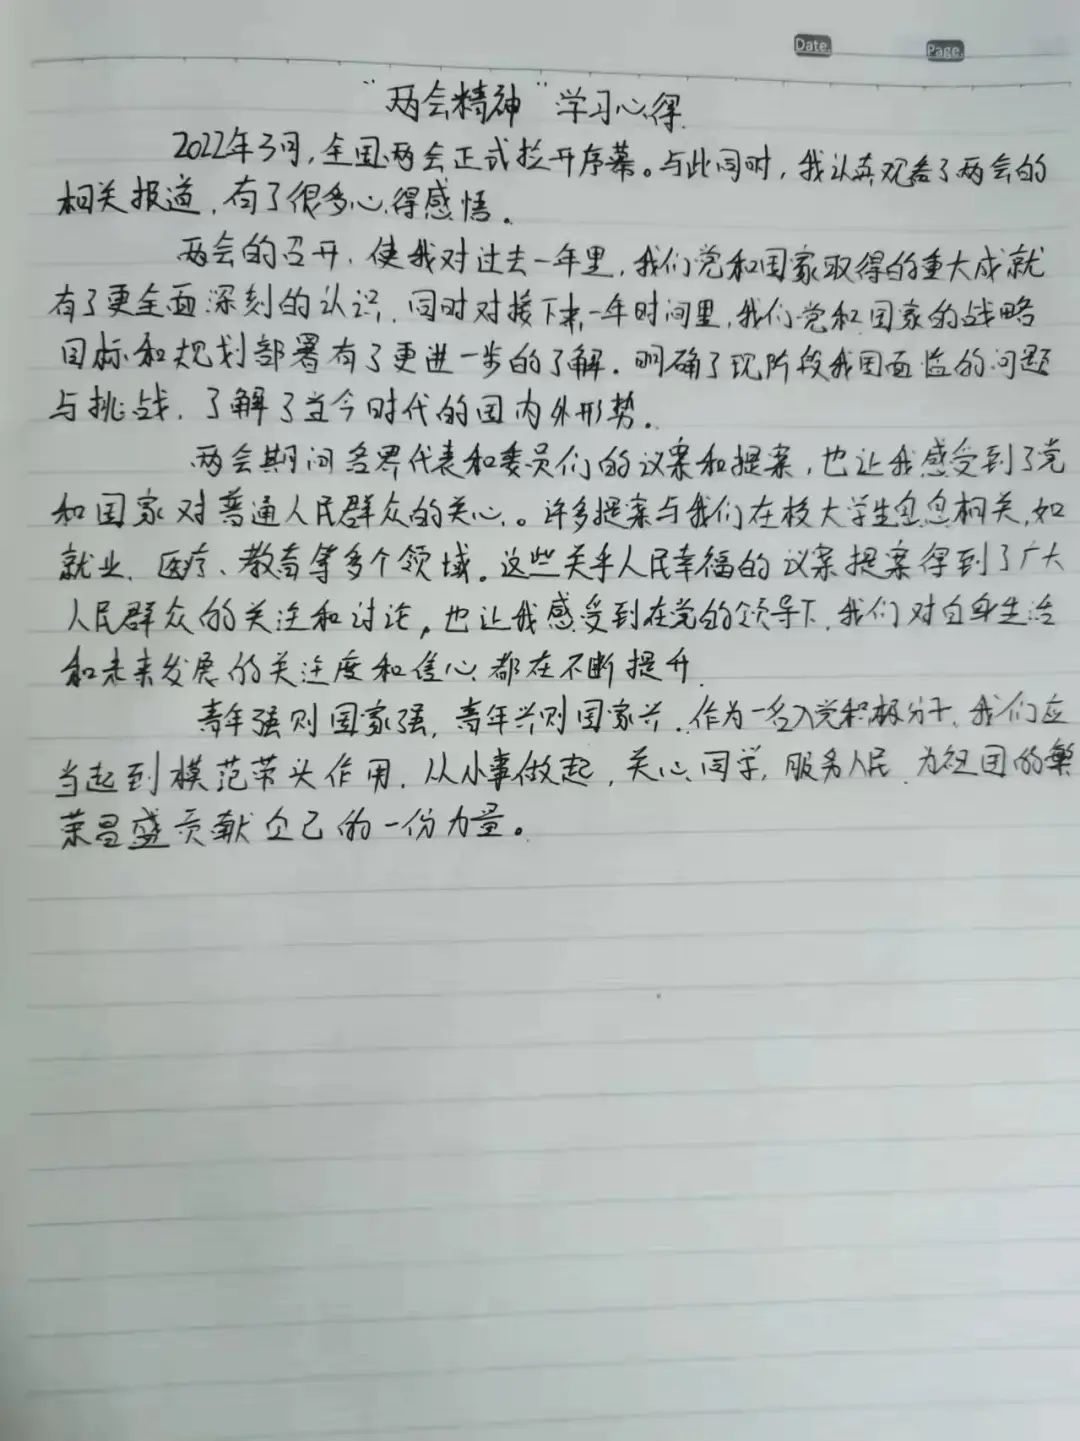 Date.
Page.
“两会精神”学习心得
2022年3月，全国两会正式拉开序幕。与此同时，我认真观看了两会的
相关报道，有了很多心得感悟。
两会的召开，使我对过去一年里，我们党和国家取得的重大成就
有了更全面深刻的认识，同时对接下来一年时间里，我们党和国家的战略
目标和规划部署有了更进一步的了解，明确了现阶段我国面临的问题
与挑战，了解了当今时代的国内外形势。
两会期间各界代表和委员们的议案和提案，也让我感受到了党
和国家对普通人民群众的关心。许多提案与我们在校大学生息息相关，如
就业、医疗、教育等多个领域。这些关乎人民幸福的议案提案得到了广大
人民群众的关注和讨论，也让我感受到在党的领导下，我们对自身生活
和未来发展的关注度和信心都在不断提升。
青年强则国家强，青年兴则国家兴。作为一名入党积极分子，我们应
当起到模范带头作用，从小事做起，关心同学，服务人民，为祖国的繁
荣昌盛贡献自己的一份力量。